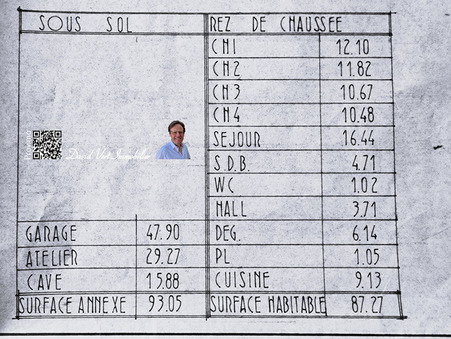 SOUS SOL
REZ DE CHAUSSEE
CH1 12.10
CH2 11.82
CH3 10.67
CH4 10.48
SEJOUR 16.44
S.D.B. 4.71
WC 1.02
HALL 3.71
GARAGE 47.90
DEG. 6.14
ATELIER 29.27
PL 1.05
CAVE 15.88
CUISINE 9.13
SURFACE ANNEXE 93.05
SURFACE HABITABLE 87.27